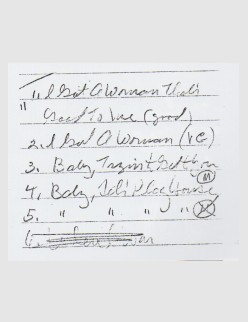 1. I Got A Woman That's
" Good To Me (good)
2. I Got A Woman (VG)
3. Baby,
4. Baby, Let's Play House
(M)
5. " " " " "
6.